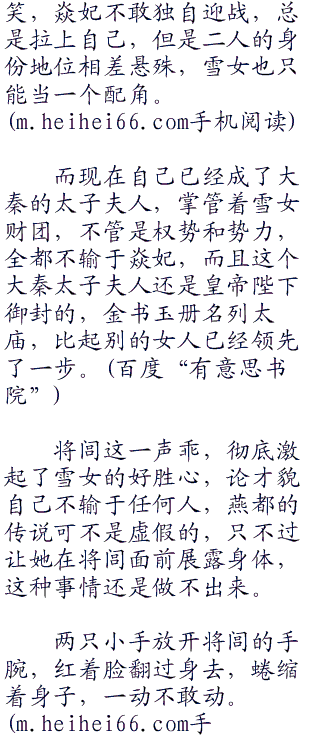 笑，焱妃不敢独自迎战，总
是拉上自己，但是二人的身
份地位相差悬殊，雪女也只
能当一个配角。
(m.heihei66.com手机阅读)
而现在自己已经成了大
秦的太子夫人，掌管着雪女
财团，不管是权势和势力，
全都不输于焱妃，而且这个
大秦太子夫人还是皇帝陛下
御封的，金书玉册名列太
庙，比起别的女人已经领先
了一步。(百度“有意思书
院”)
将闾这一声乖，彻底激
起了雪女的好胜心，论才貌
自己不输于任何人，燕都的
传说可不是虚假的，只不过
让她在将闾面前展露身体，
这种事情还是做不出来。
两只小手放开将闾的手
腕，红着脸翻过身去，蜷缩
着身子，一动不敢动。
(m.heihei66.com手